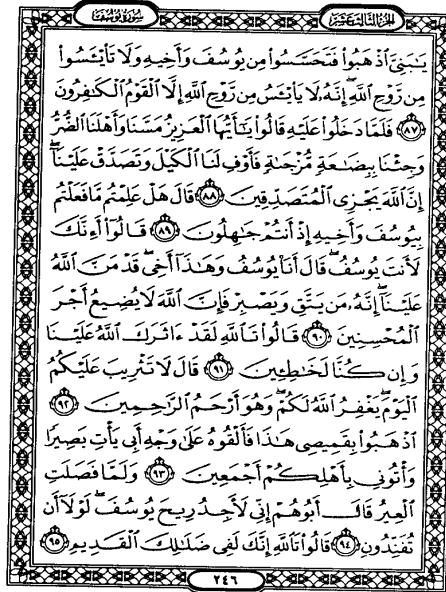 الجزء الثالث عشر
سورة يوسف
يَٰبَنِىَّ ٱذْهَبُوا۟ فَتَحَسَّسُوا۟ مِن يُوسُفَ وَأَخِيهِ وَلَا تَا۟يْـَٔسُوا۟
مِن رَّوْحِ ٱللَّهِ ۖ إِنَّهُۥ لَا يَا۟يْـَٔسُ مِن رَّوْحِ ٱللَّهِ إِلَّا ٱلْقَوْمُ ٱلْكَٰفِرُونَ
٨٧ فَلَمَّا دَخَلُوا۟ عَلَيْهِ قَالُوا۟ يَٰٓأَيُّهَا ٱلْعَزِيزُ مَسَّنَا وَأَهْلَنَا ٱلضُّرُّ
وَجِئْنَا بِبِضَٰعَةٍ مُّزْجَىٰةٍ فَأَوْفِ لَنَا ٱلْكَيْلَ وَتَصَدَّقْ عَلَيْنَآ ۖ
إِنَّ ٱللَّهَ يَجْزِى ٱلْمُتَصَدِّقِينَ ٨٨ قَالَ هَلْ عَلِمْتُم مَّا فَعَلْتُم
بِيُوسُفَ وَأَخِيهِ إِذْ أَنتُمْ جَٰهِلُونَ ٨٩ قَالُوٓا۟ أَءِنَّكَ
لَأَنتَ يُوسُفُ ۖ قَالَ أَنَا۠ يُوسُفُ وَهَٰذَآ أَخِى ۖ قَدْ مَنَّ ٱللَّهُ
عَلَيْنَآ ۖ إِنَّهُۥ مَن يَتَّقِ وَيَصْبِرْ فَإِنَّ ٱللَّهَ لَا يُضِيعُ أَجْرَ
ٱلْمُحْسِنِينَ ٩٠ قَالُوا۟ تَٱللَّهِ لَقَدْ ءَاثَرَكَ ٱللَّهُ عَلَيْنَا
وَإِن كُنَّا لَخَٰطِـِٔينَ ٩١ قَالَ لَا تَثْرِيبَ عَلَيْكُمُ
ٱلْيَوْمَ ۖ يَغْفِرُ ٱللَّهُ لَكُمْ ۖ وَهُوَ أَرْحَمُ ٱلرَّٰحِمِينَ ٩٢
ٱذْهَبُوا۟ بِقَمِيصِى هَٰذَا فَأَلْقُوهُ عَلَىٰ وَجْهِ أَبِى يَأْتِ بَصِيرًا
وَأْتُونِى بِأَهْلِكُمْ أَجْمَعِينَ ٩٣ وَلَمَّا فَصَلَتِ
ٱلْعِيرُ قَالَ أَبُوهُمْ إِنِّى لَأَجِدُ رِيحَ يُوسُفَ ۖ لَوْلَآ أَن
تُفَنِّدُونِ ٩٤ قَالُوا۟ تَٱللَّهِ إِنَّكَ لَفِى ضَلَٰلِكَ ٱلْقَدِيمِ ٩٥
٢٤٦